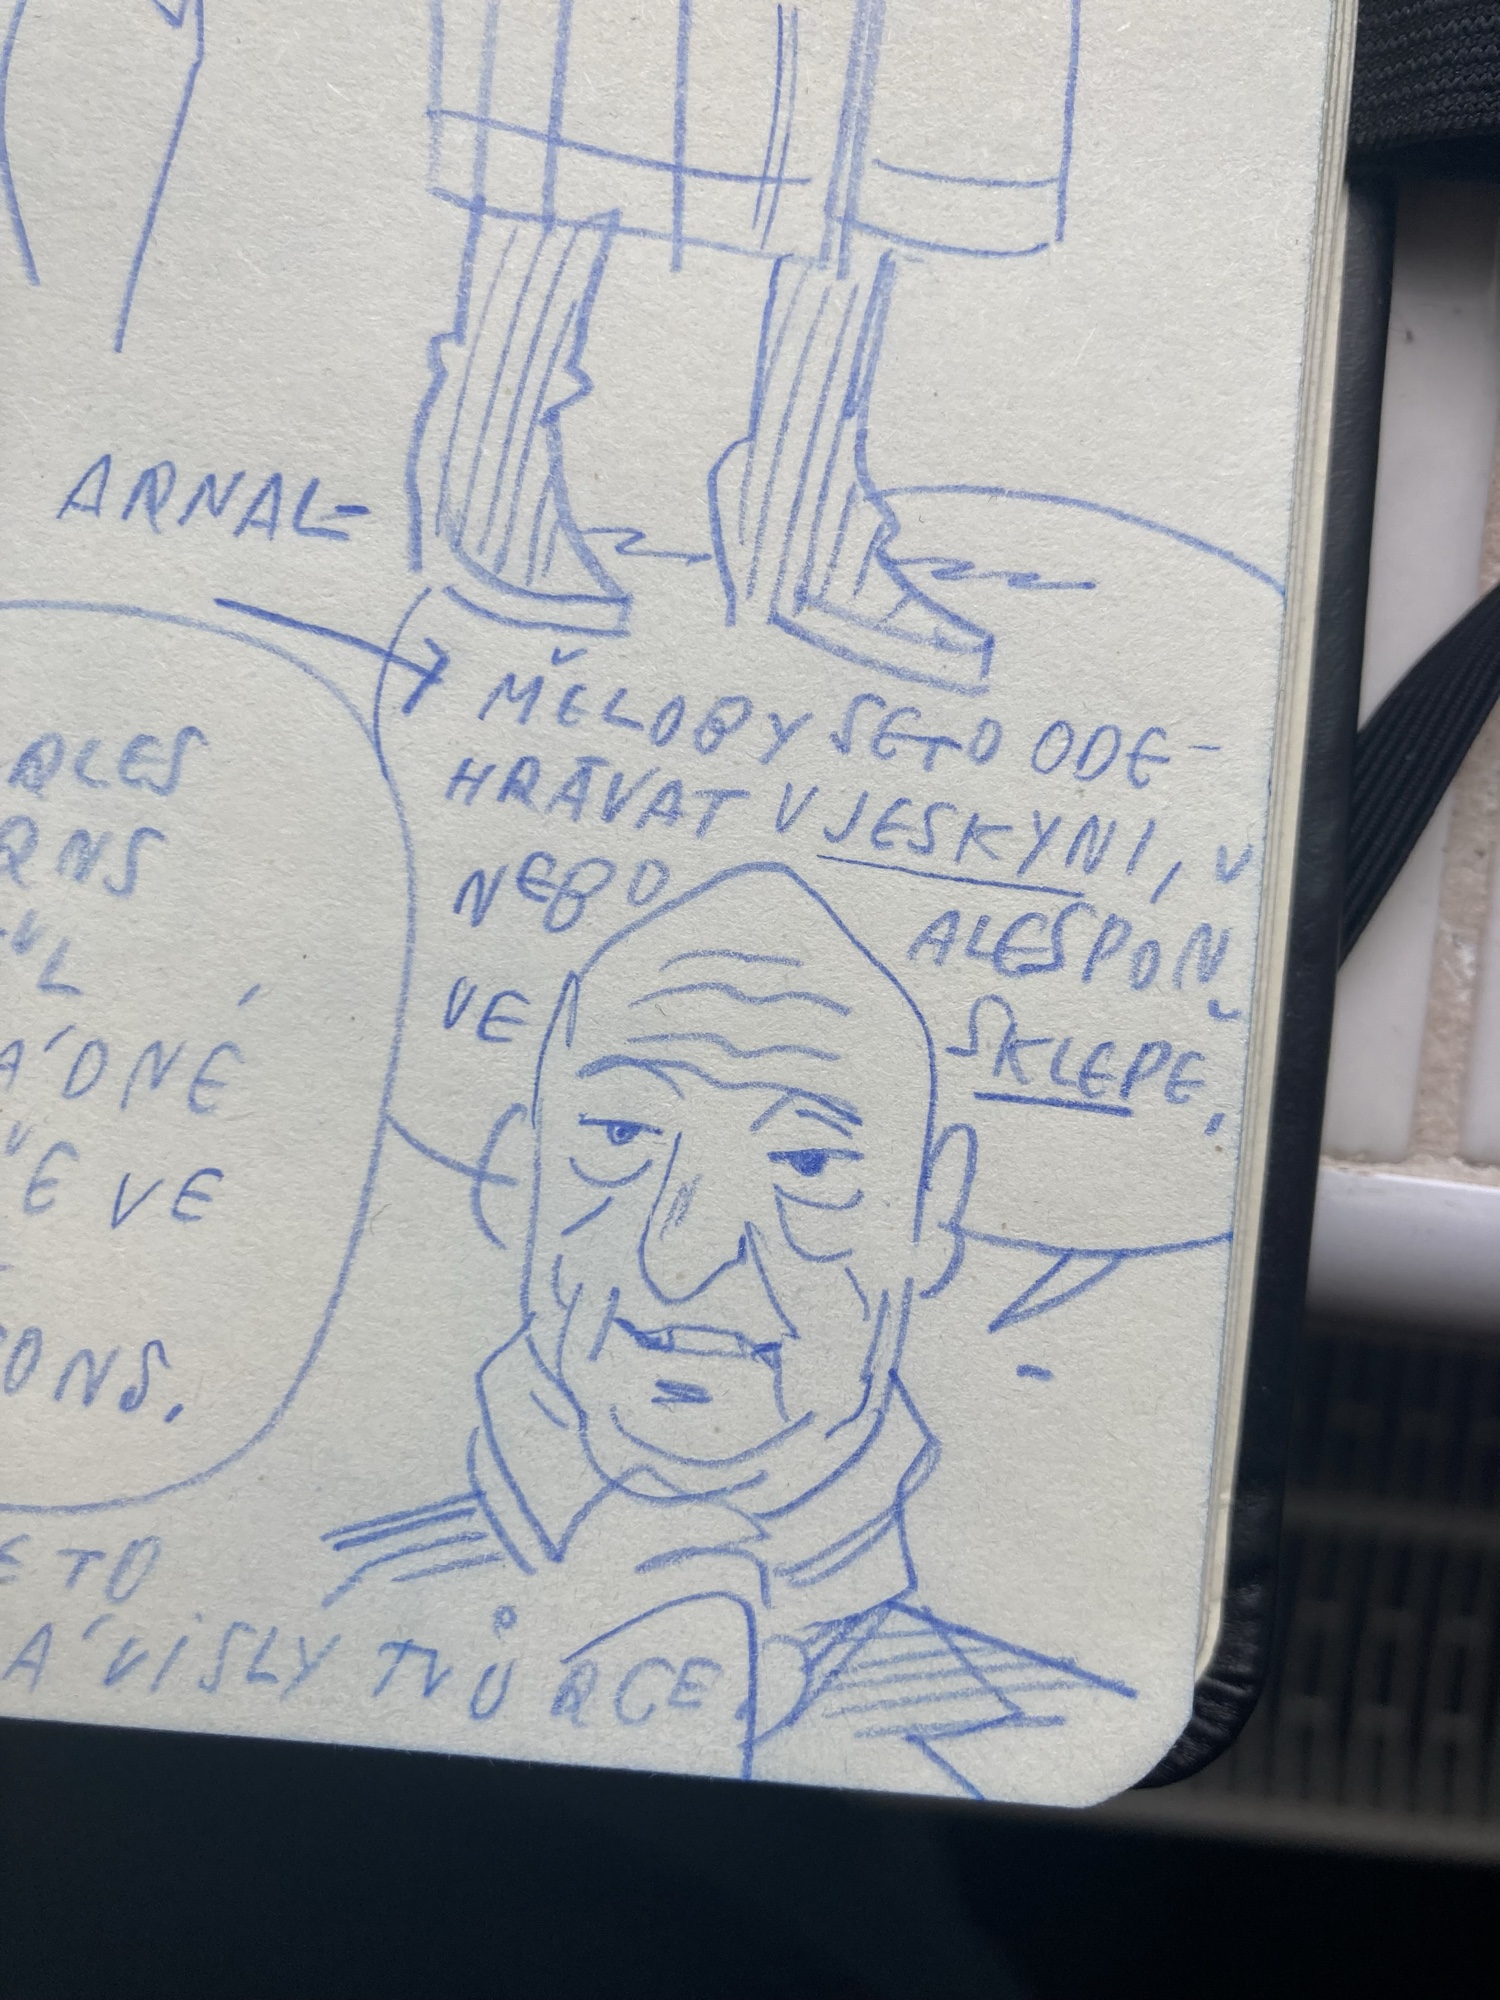 ARNAL-
MĚLO BY SE TO ODE-
HRÁVAT V JESKYNI, V
NEBO ALESPOŇ
VE SKLEPE.
RLES
RNS
NL
ÁDNÉ
Ě VE
ONS.
E TO
ÁVISLY TVŮRCE.